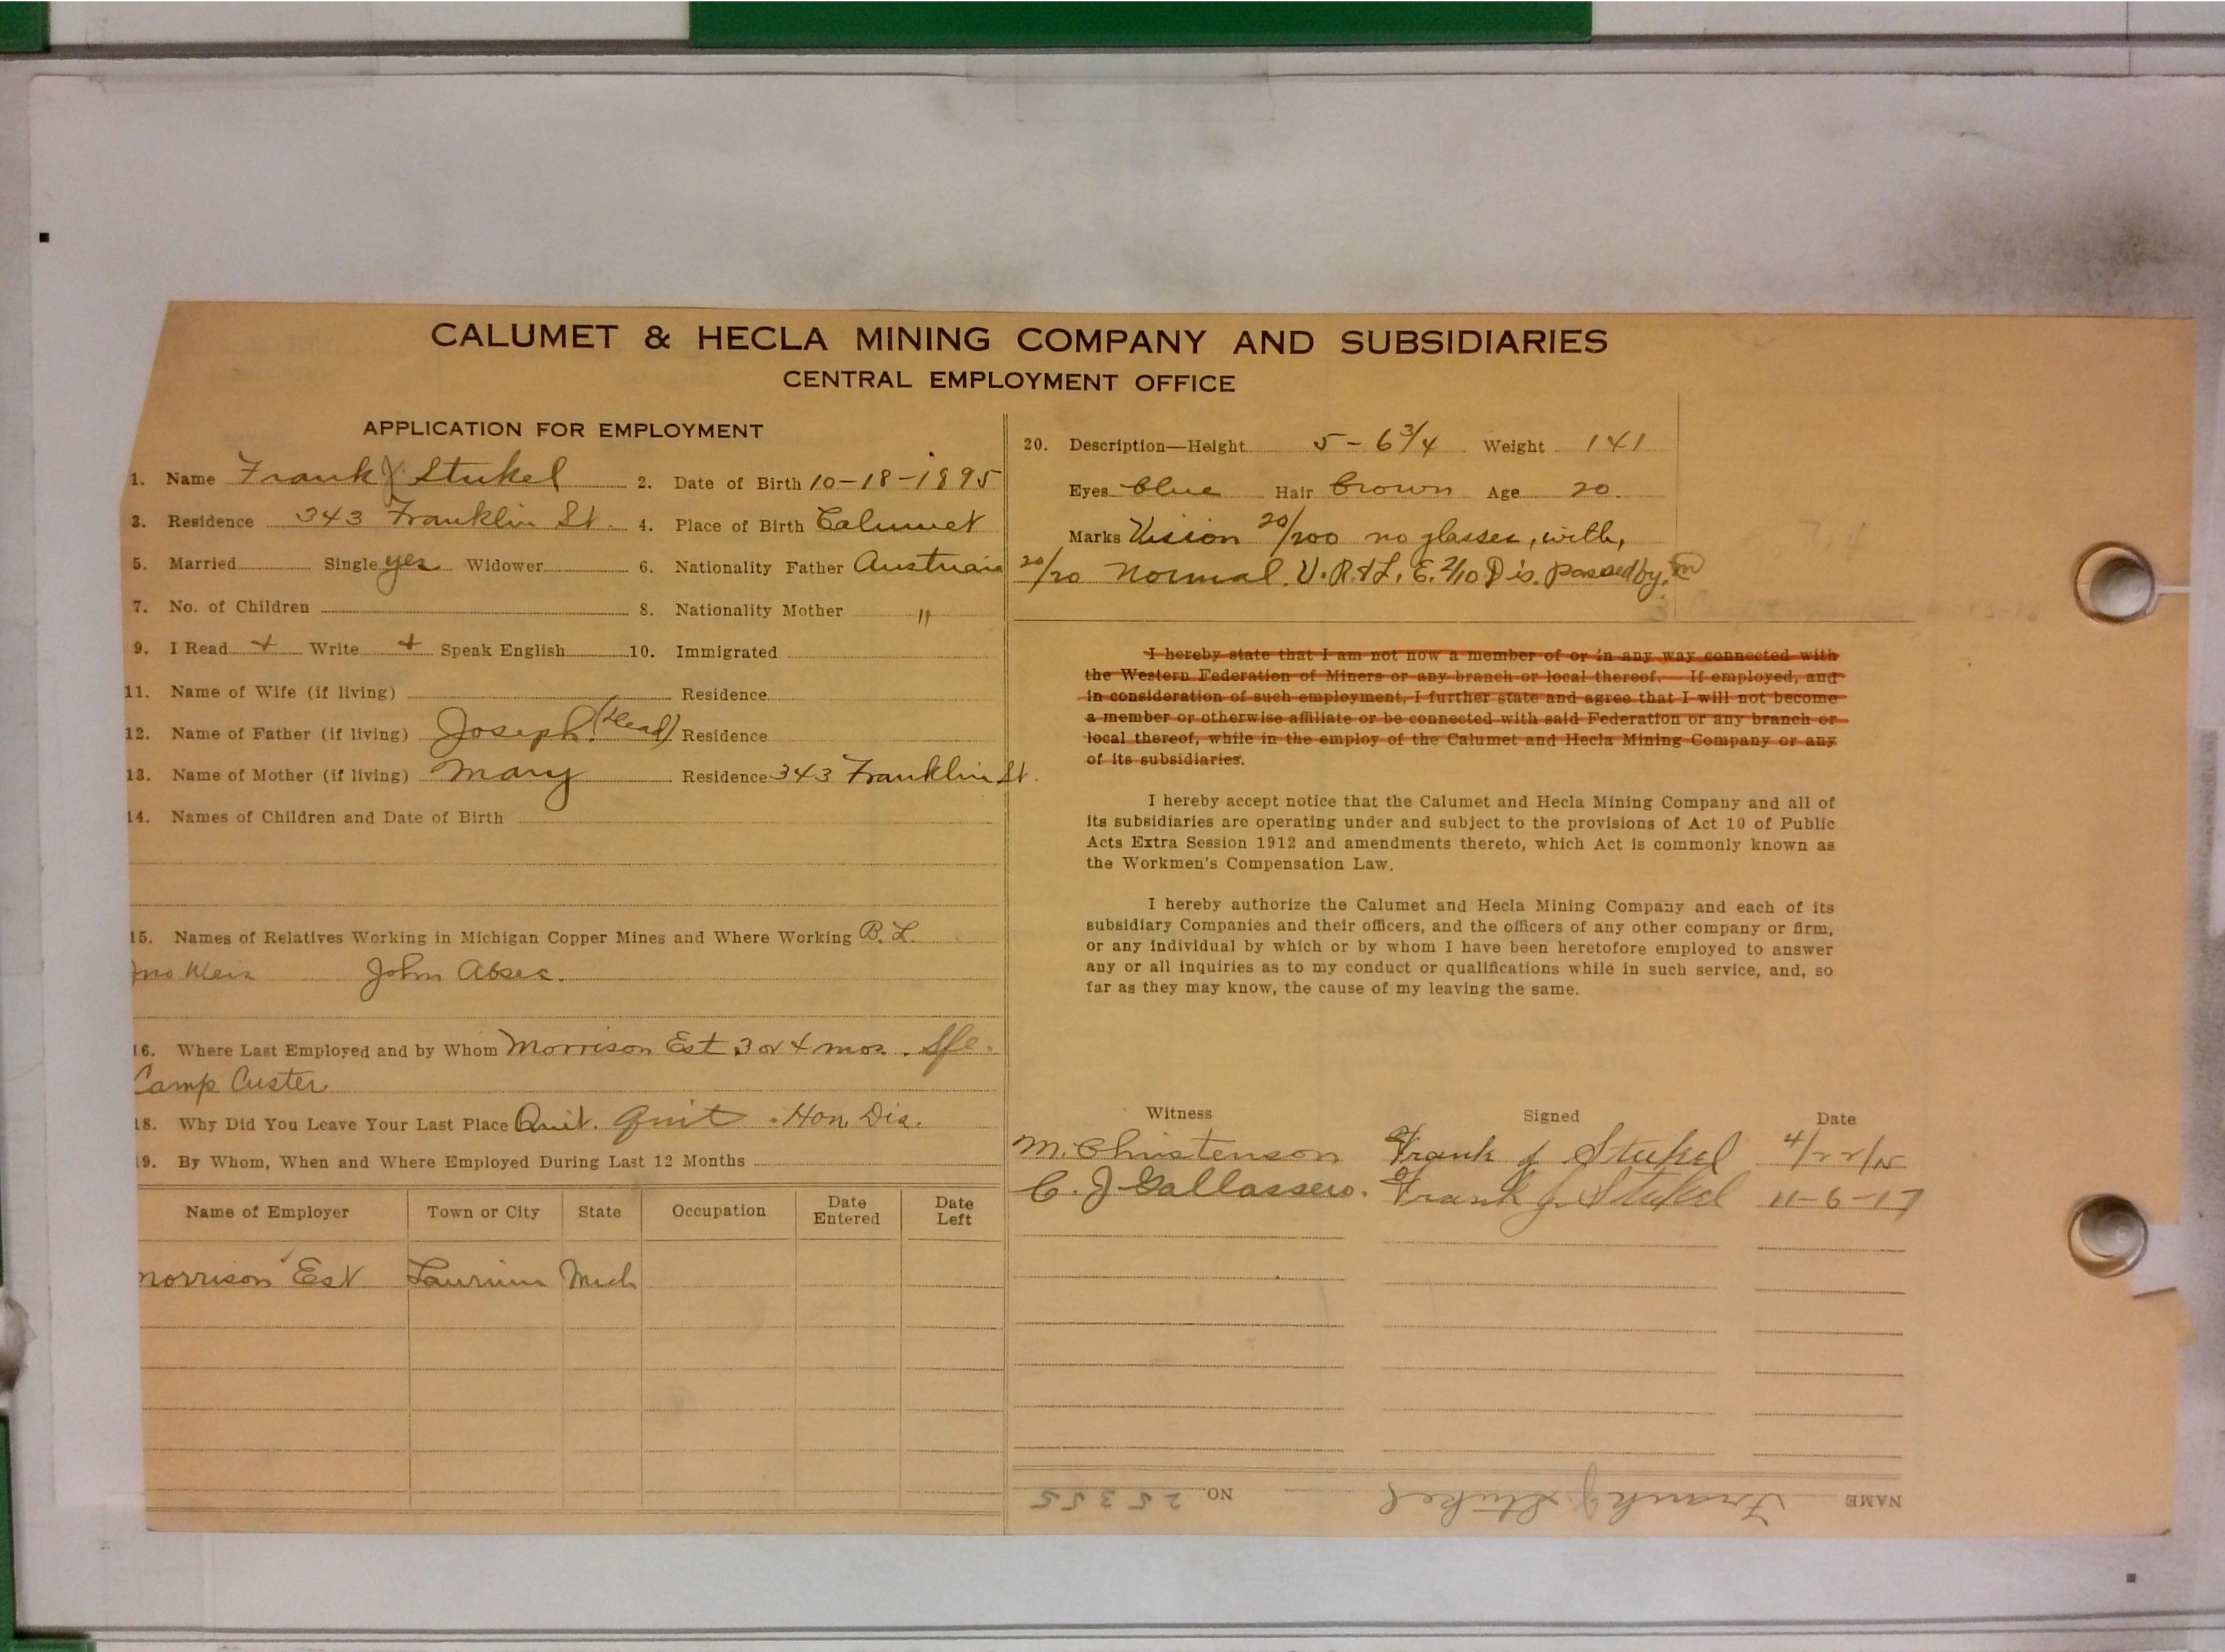 CALUMET & HECLA MINING COMPANY AND SUBSIDIARIES
CENTRAL EMPLOYMENT OFFICE
APPLICATION FOR EMPLOYMENT
1. Name Frank J Stukel 2. Date of Birth 10-18-1895
3. Residence 343 Franklin St. 4. Place of Birth Calumet
5. Married Single yes Widower 6. Nationality Father Austrian
7. No. of Children 8. Nationality Mother "
9. I Read + Write + Speak English 10. Immigrated
11. Name of Wife (if living) Residence
12. Name of Father (if living) Joseph. (Dead) Residence
13. Name of Mother (if living) Mary Residence 343 Franklin St.
14. Names of Children and Date of Birth
15. Names of Relatives Working in Michigan Copper Mines and Where Working B. L.
John Absec.
16. Where Last Employed and by Whom Morrison Est 3 or 4 mos.
Camp Custer
18. Why Did You Leave Your Last Place Quit. Quit. Hon. Dis.
19. By Whom, When and Where Employed During Last 12 Months
Name of Employer Town or City State Occupation Date Entered Date Left
Morrison Est Laurium Mich
20. Description—Height 5-6 3/4 Weight 141
Eyes blue Hair brown Age 20.
Marks Vision 20/200 no glasses, with,
20/20 normal. V. R. & L. E. 2/10 Dis. passed by
I hereby state that I am not now a member of or in any way connected with
the Western Federation of Miners or any branch or local thereof. If employed, and
in consideration of such employment, I further state and agree that I will not become
a member or otherwise affiliate or be connected with said Federation or any branch or
local thereof, while in the employ of the Calumet and Hecla Mining Company or any
of its subsidiaries.
I hereby accept notice that the Calumet and Hecla Mining Company and all of
its subsidiaries are operating under and subject to the provisions of Act 10 of Public
Acts Extra Session 1912 and amendments thereto, which Act is commonly known as
the Workmen's Compensation Law.
I hereby authorize the Calumet and Hecla Mining Company and each of its
subsidiary Companies and their officers, and the officers of any other company or firm,
or any individual by which or by whom I have been heretofore employed to answer
any or all inquiries as to my conduct or qualifications while in such service, and, so
far as they may know, the cause of my leaving the same.
Witness Signed Date
M. Christenson Frank J Stukel 4/22/15
C. J Frank J. Stukel 11-6-17
NAME Frank J. Stukel NO. 25355